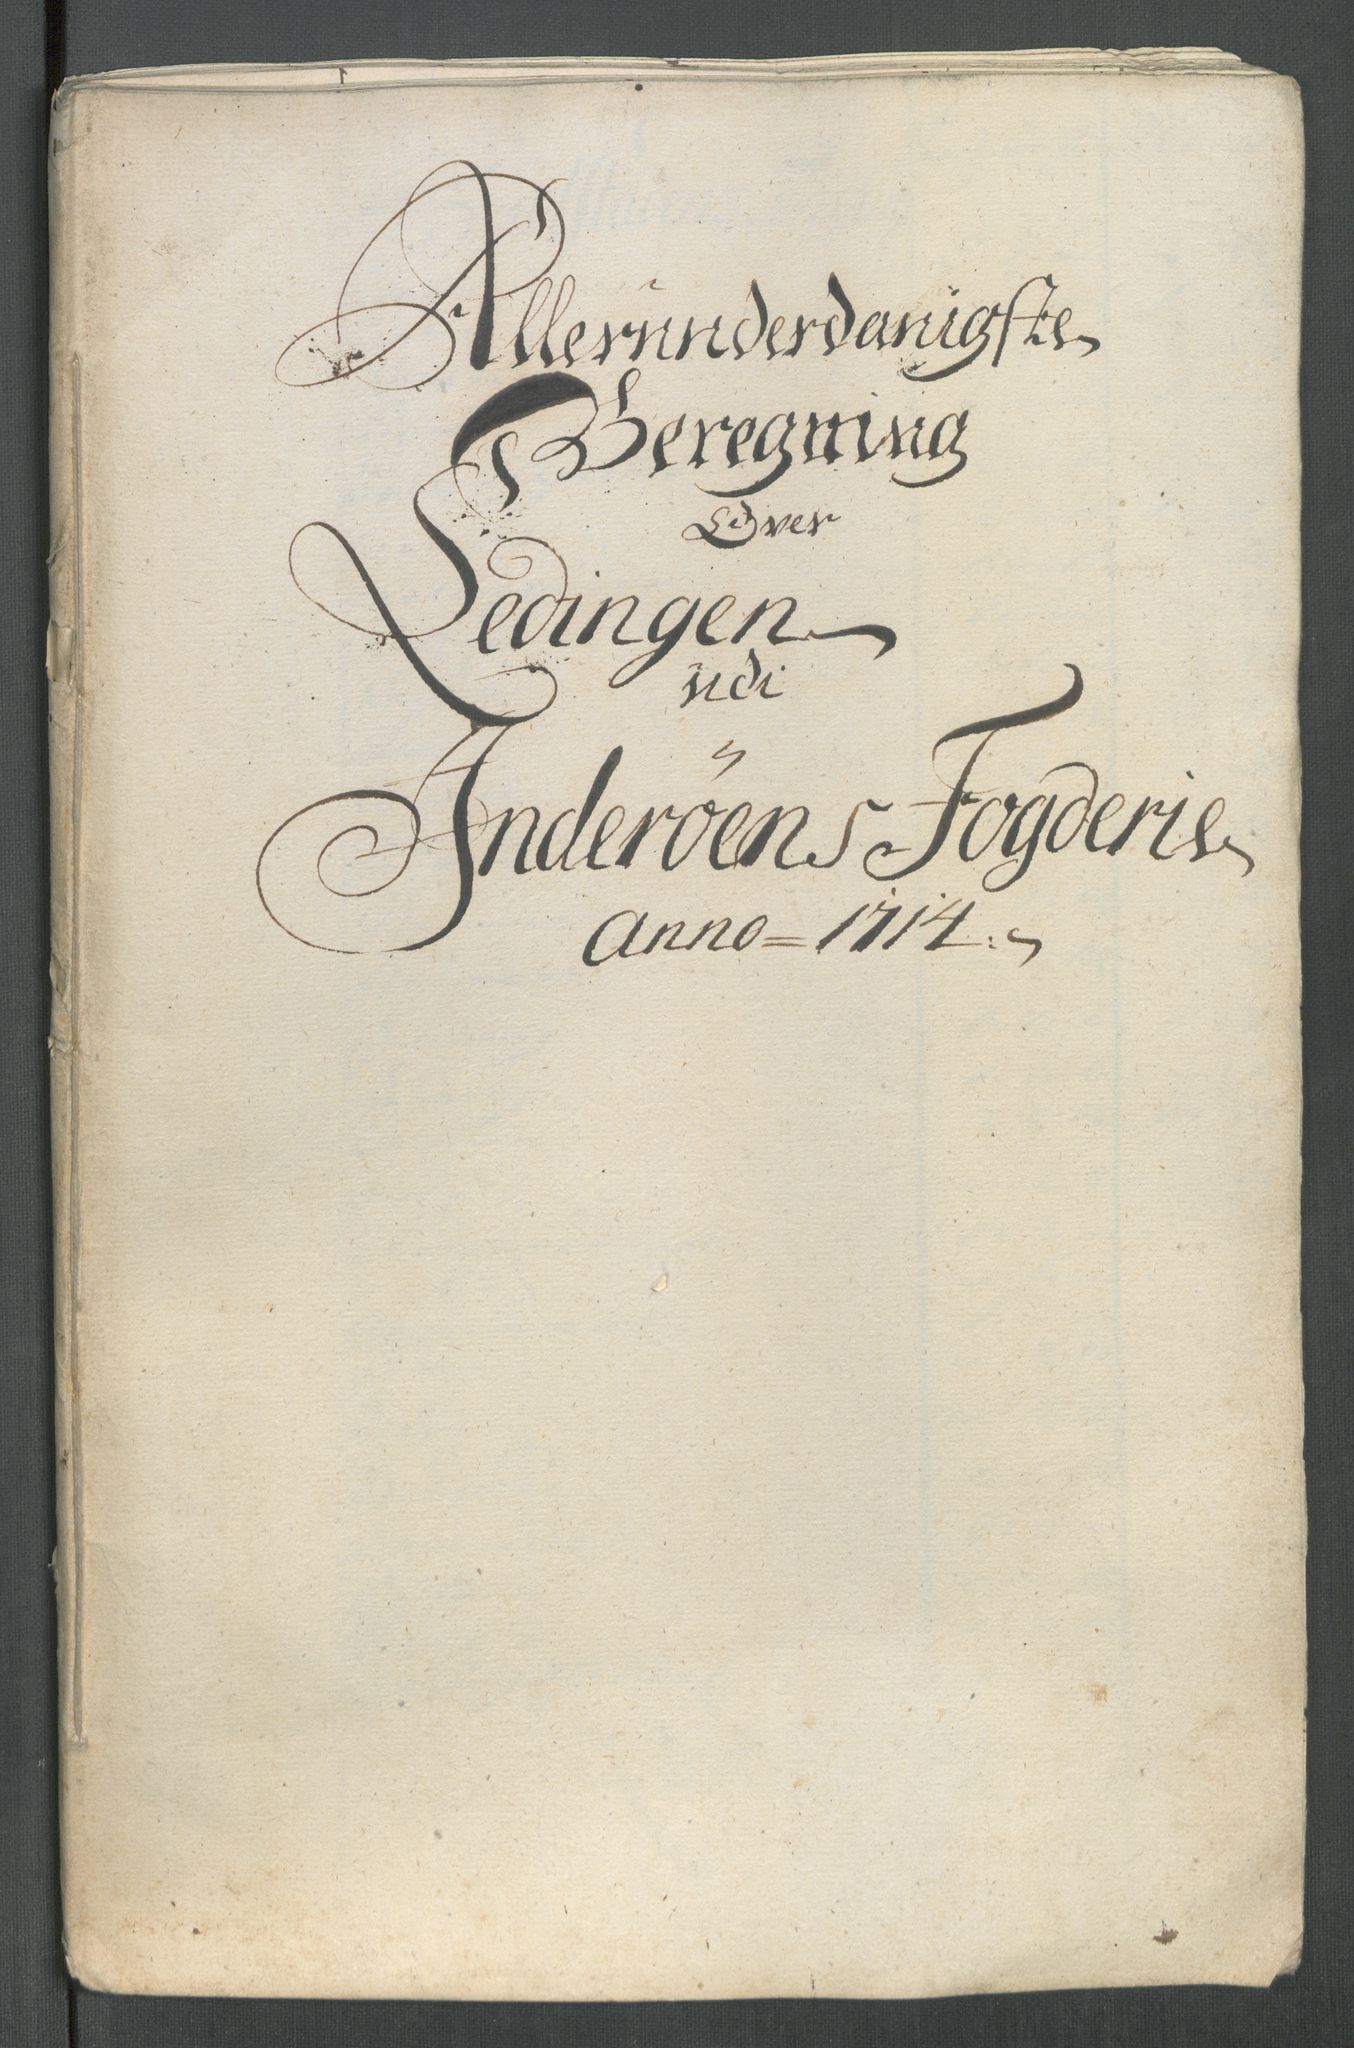 Allerunderdanigste
Beregning
Over
Ledingen
udi
Inderöens Fogderie
Anno = 1714.